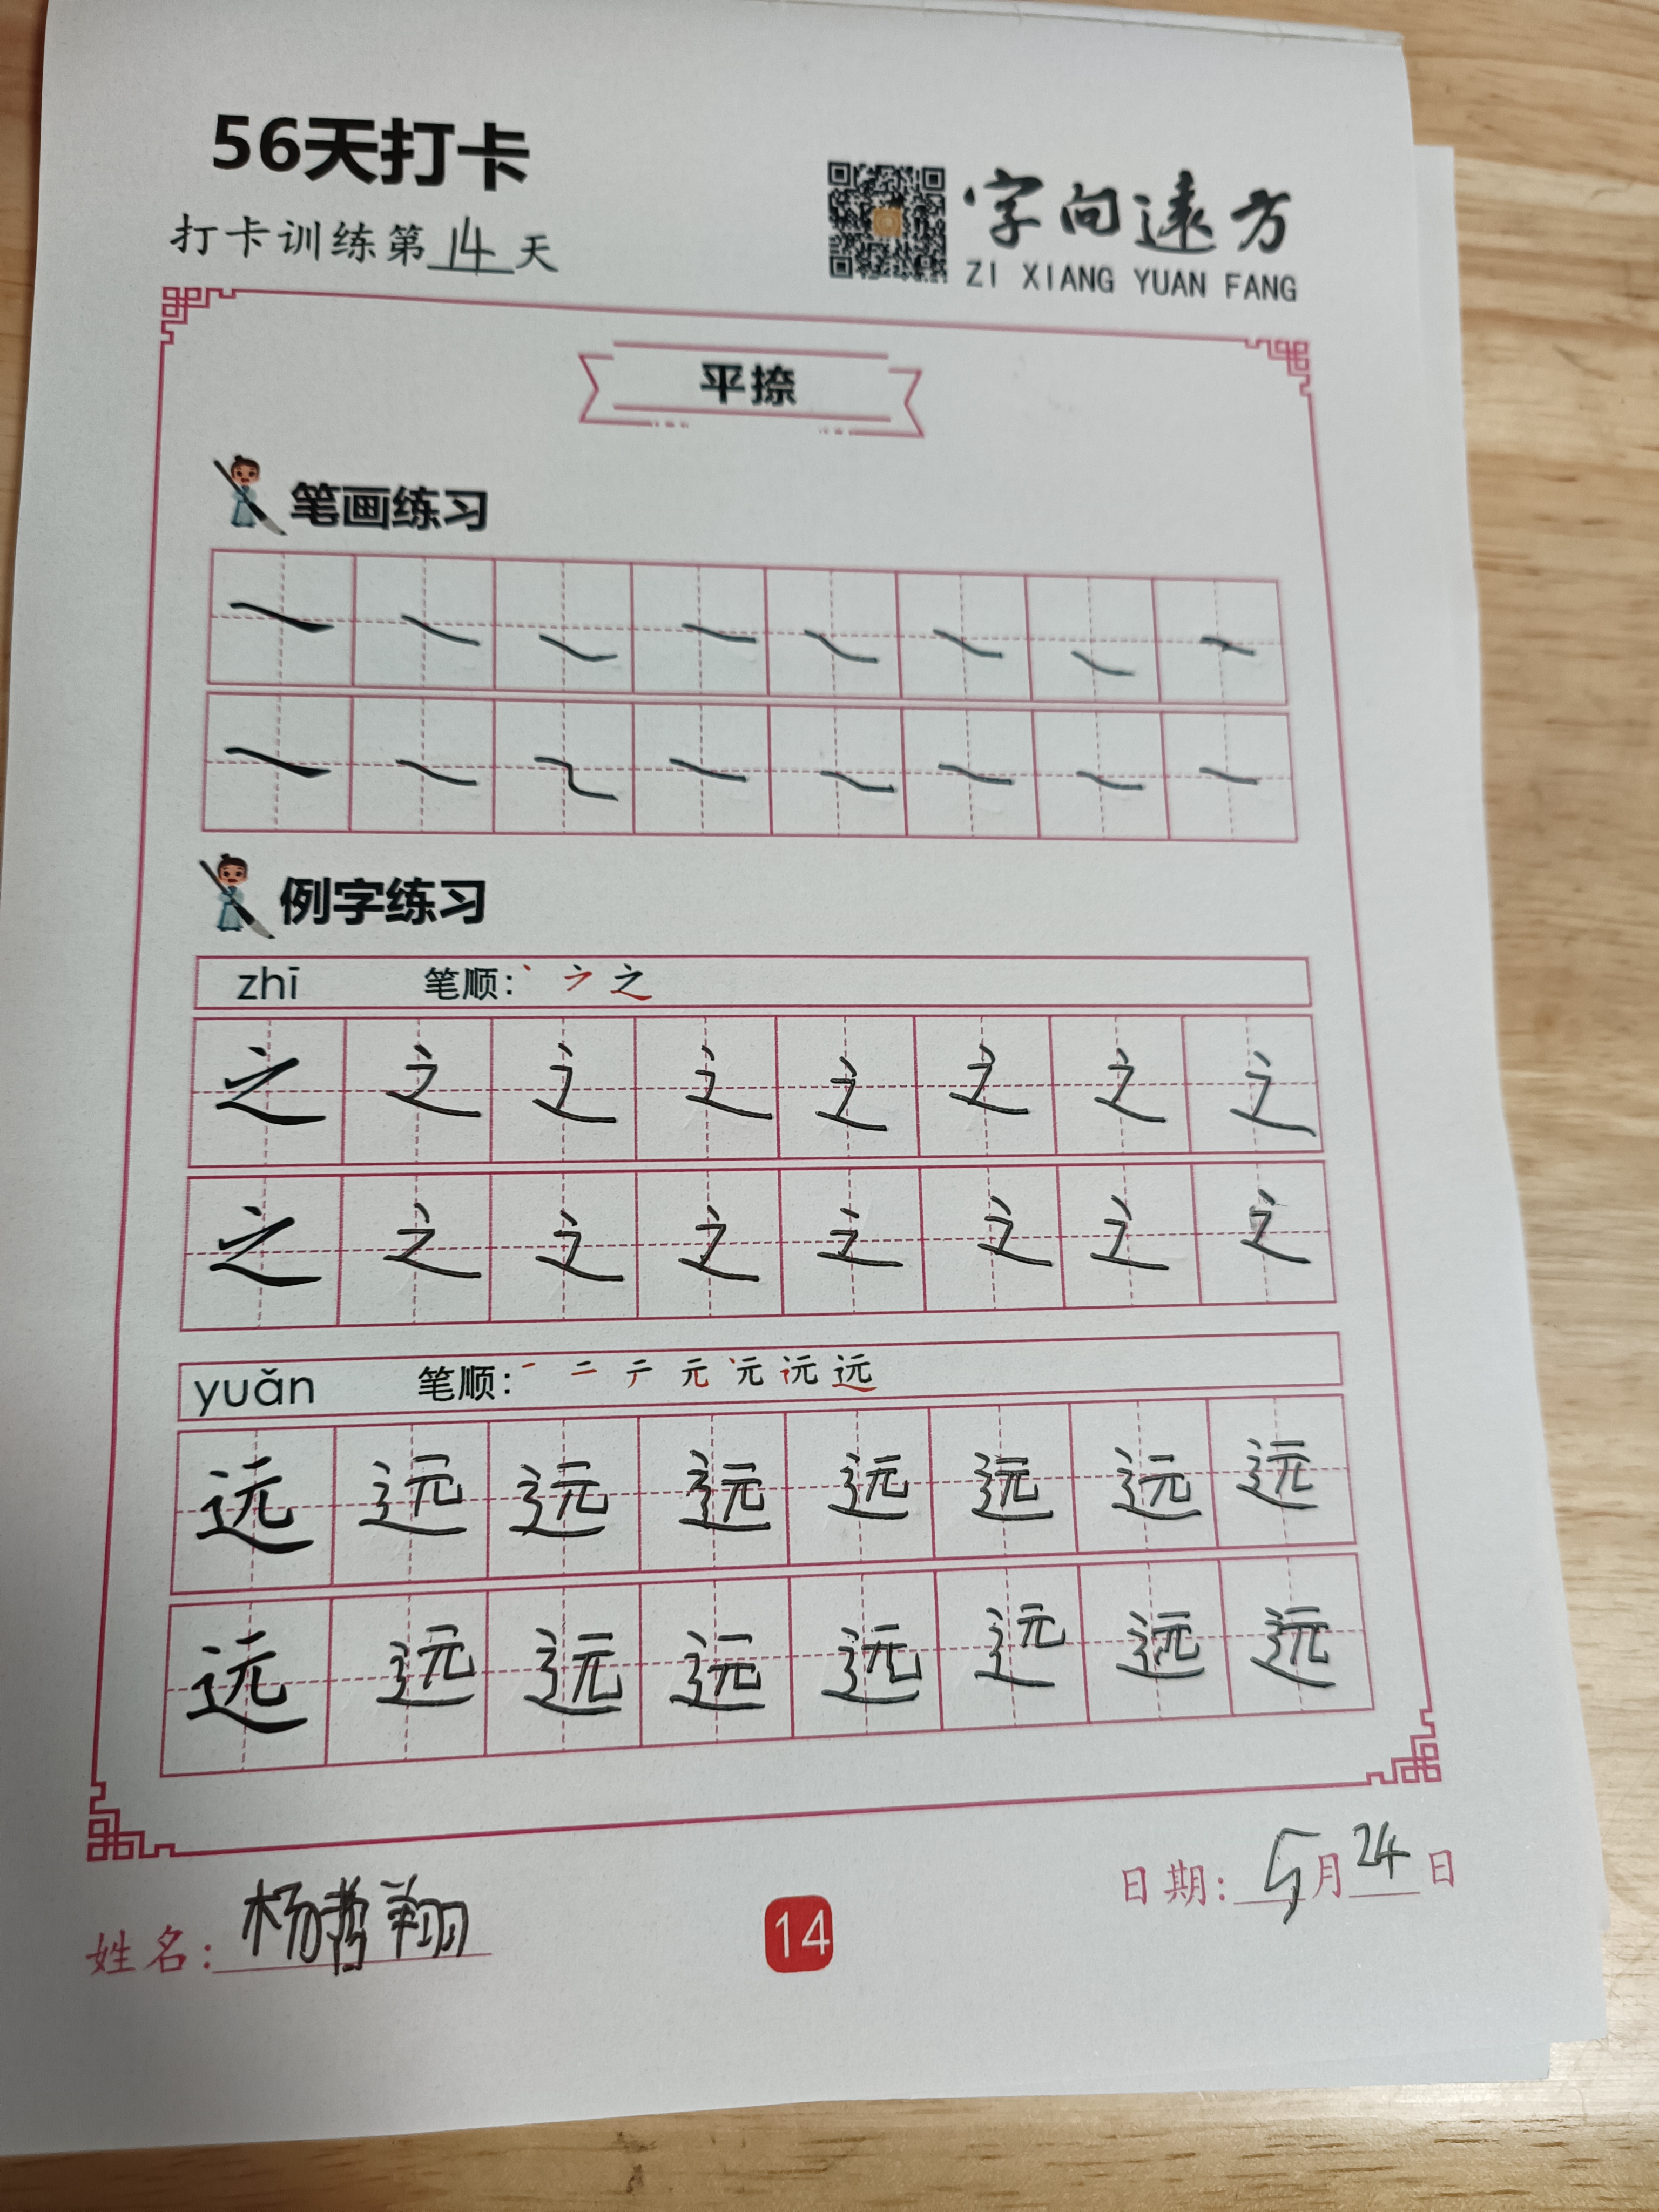 56天打卡
打卡训练第14天
字向遠方
ZI XIANG YUAN FANG
平捺
笔画练习
例字练习
zhī 笔顺：丶 之
之 之 之 之 之 之 之 之
之 之 之 之 之 之 之 之
yuǎn 笔顺：一 二 元 元 远
远 远 远 远 远 远 远 远
远 远 远 远 远 远 远 远
姓名：杨哲翔
14
日期：5月24日